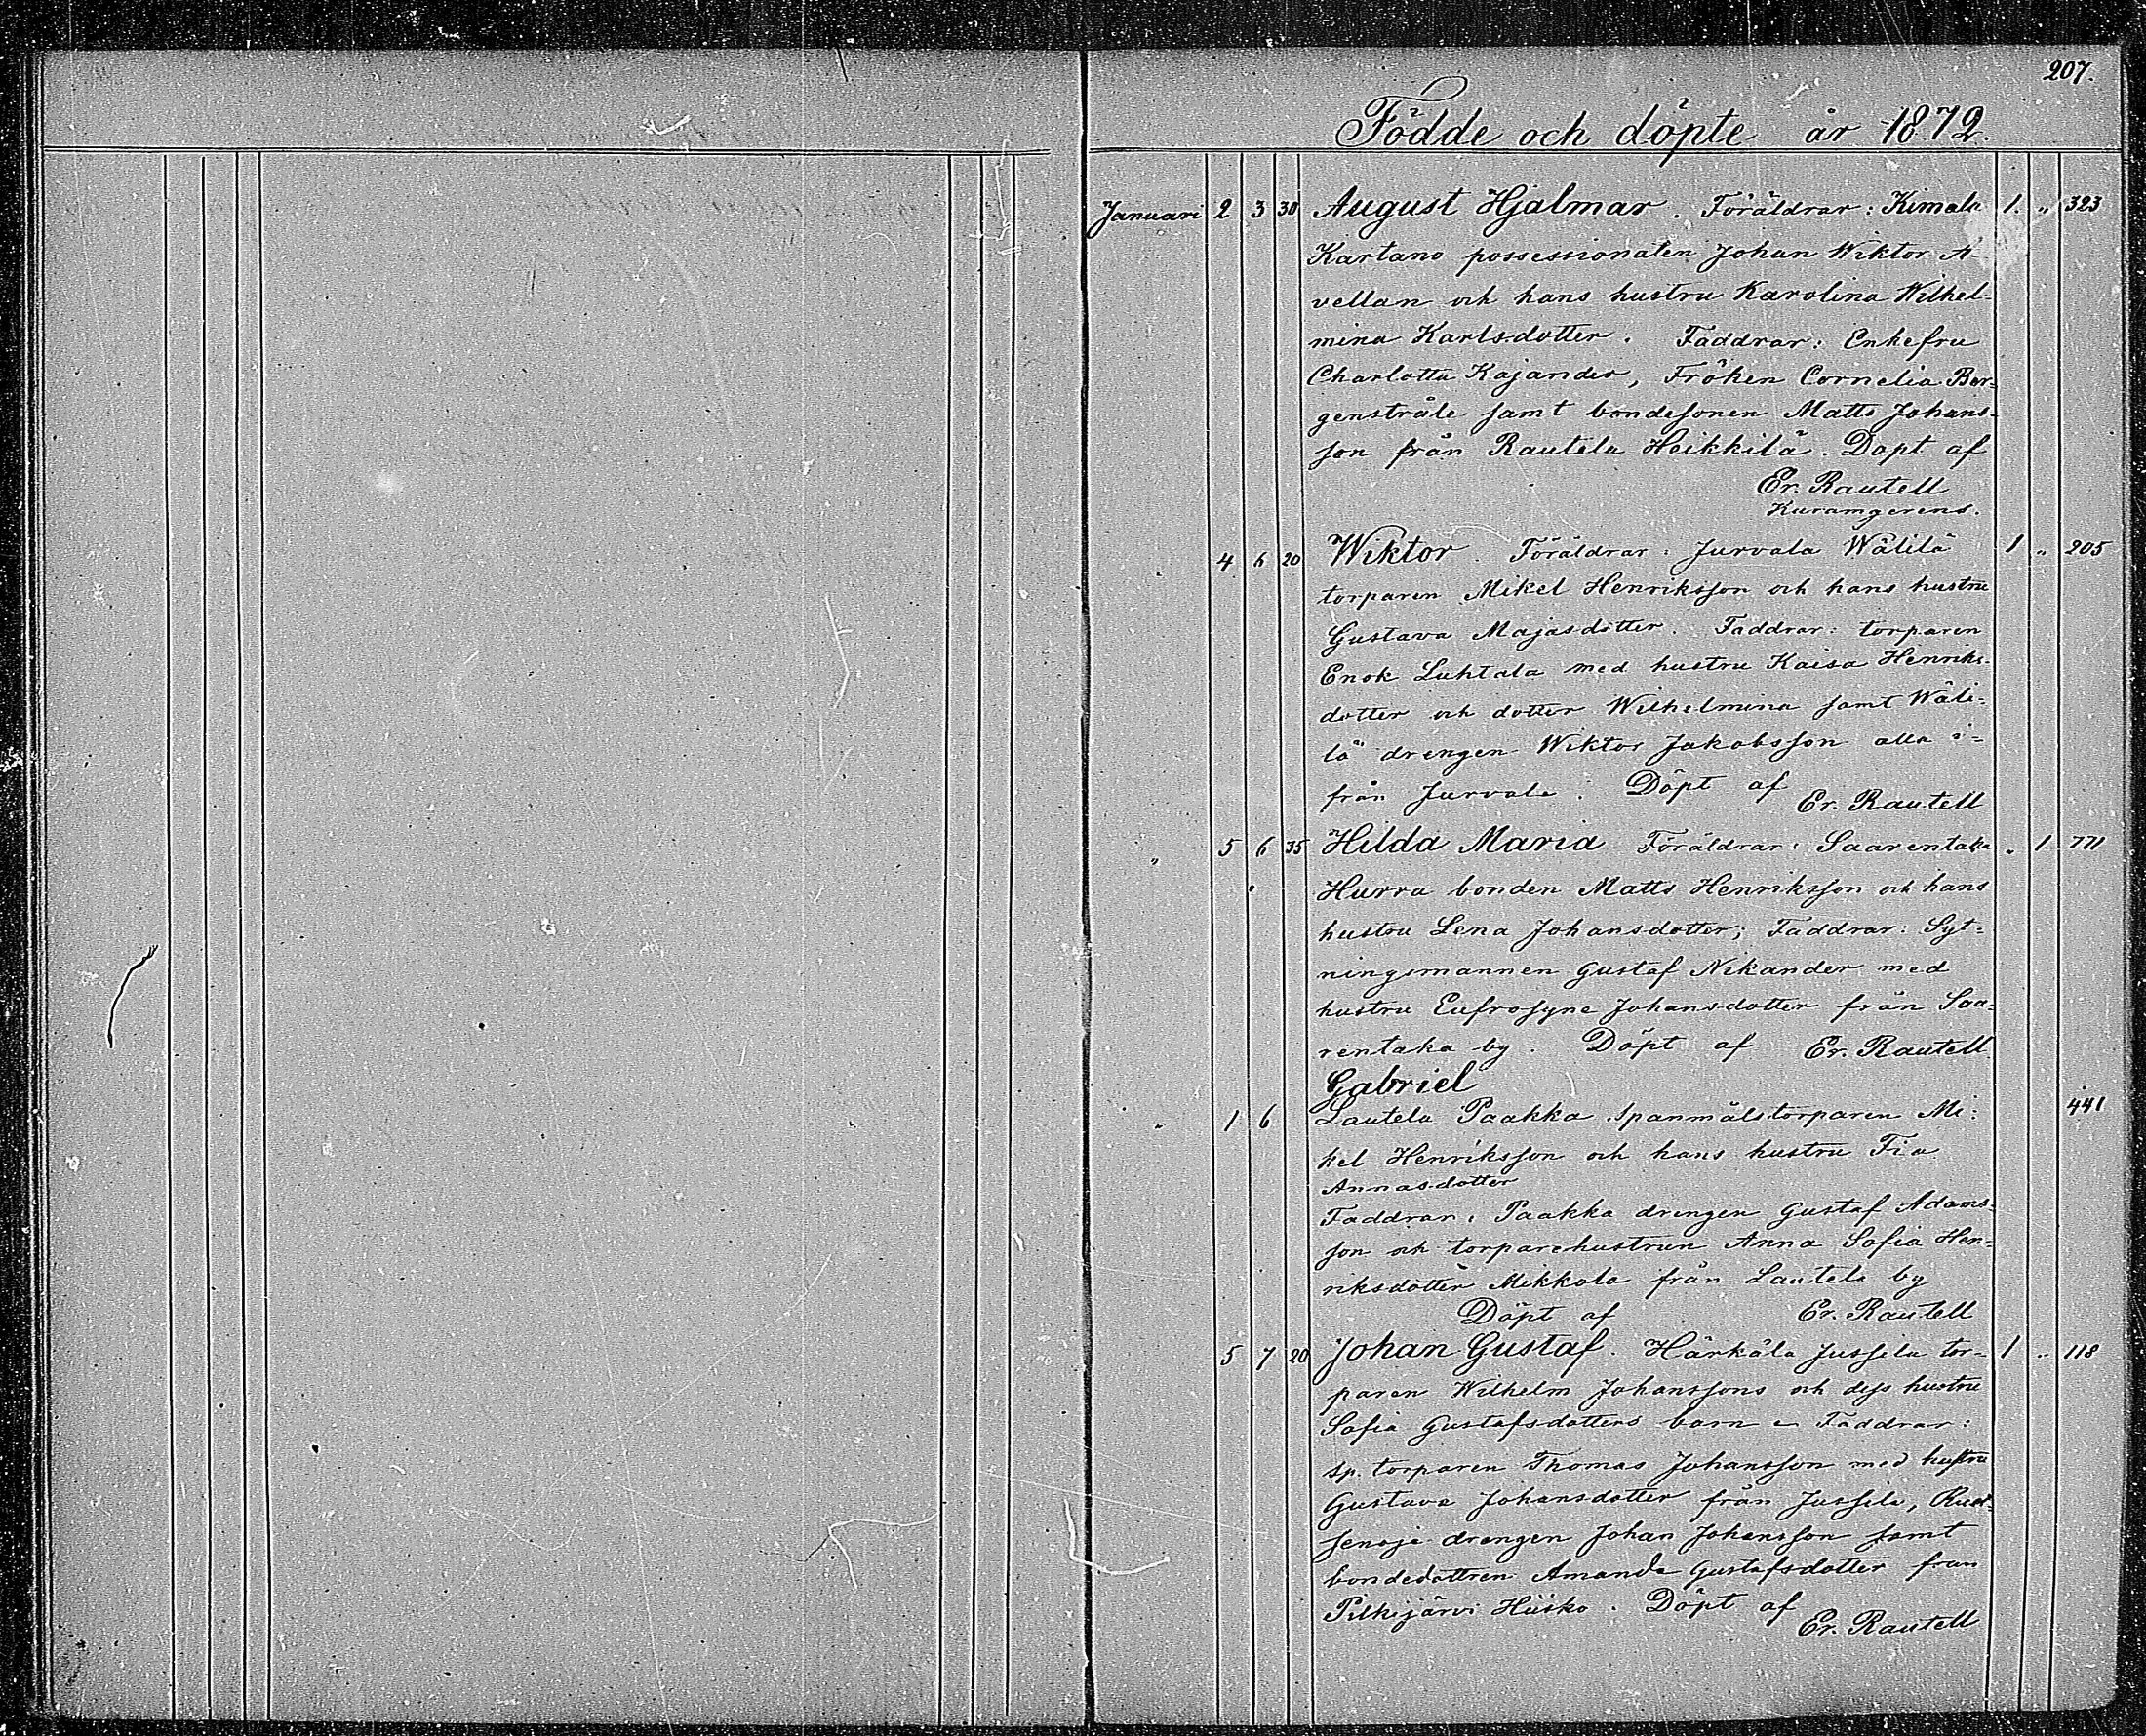 207.
Födde och döpte år 1872.
Januari 2 3 30 August Hjalmar. Föräldrar: Kimala 1. „ 323
Kartano possessionaten Johan Wiktor A-
vellan och hans hustru Karolina Wilhel-
mina Karlsdotter. Faddrar: Enkefru
Charlotta Kajander, Fröken Cornelia Bor-
genstråle samt bondesonen Matts Johans-
son från Rautela Heikkilä. Döpt af
Er. Rautell
4 6 20 Wiktor. Föräldrar: Jurvala Wälilä 1 „ 205
torparen Mikel Henriksson och hans hustru
Gustava Majasdotter. Faddrar: torparen
Enok Luhtala med hustru Kaisa Henriks-
dotter och dotter Wilhelmina samt Wäli-
lä drengen Wiktor Jakobsson alla i-
från Jurvala. Döpt af Er. Rautell
„ 5 6 35 Hilda Maria Föräldrar: Saarentaka „ 1 771
Hurra bonden Matts Henriksson och hans
hustru Lena Johansdotter; Faddrar: Syt-
ningsmannen Gustaf Nikander med
hustru Eufrosyne Johansdotter från Saa-
rentaka by. Döpt af Er. Rautell
Gabriel
„ 1 6 Lautela Paakka Spanmålstorparen Mi- 441
kel Henriksson och hans hustru Fia
Annasdotter
Faddrar: Paakka drengen Gustaf Adams-
son och torparehustrun Anna Sofia Hen-
riksdotter Mikkola från Lautela by
Döpt af Er. Rautell
5 7 20 Johan Gustaf. Härkälä Jussila tor- 1 „ 118
paren Wilhelm Johanssons och dess hustru
Sofia Gustafsdotters barn Faddrar:
sp. torparen Thomas Johansson med hustru
Gustava Johansdotter från Jussila,
drengen Johan Johansson samt
bondedottren Amanda Gustafsdotter från
Pitkäjärvi Huisko. Döpt af
Er. Rautell